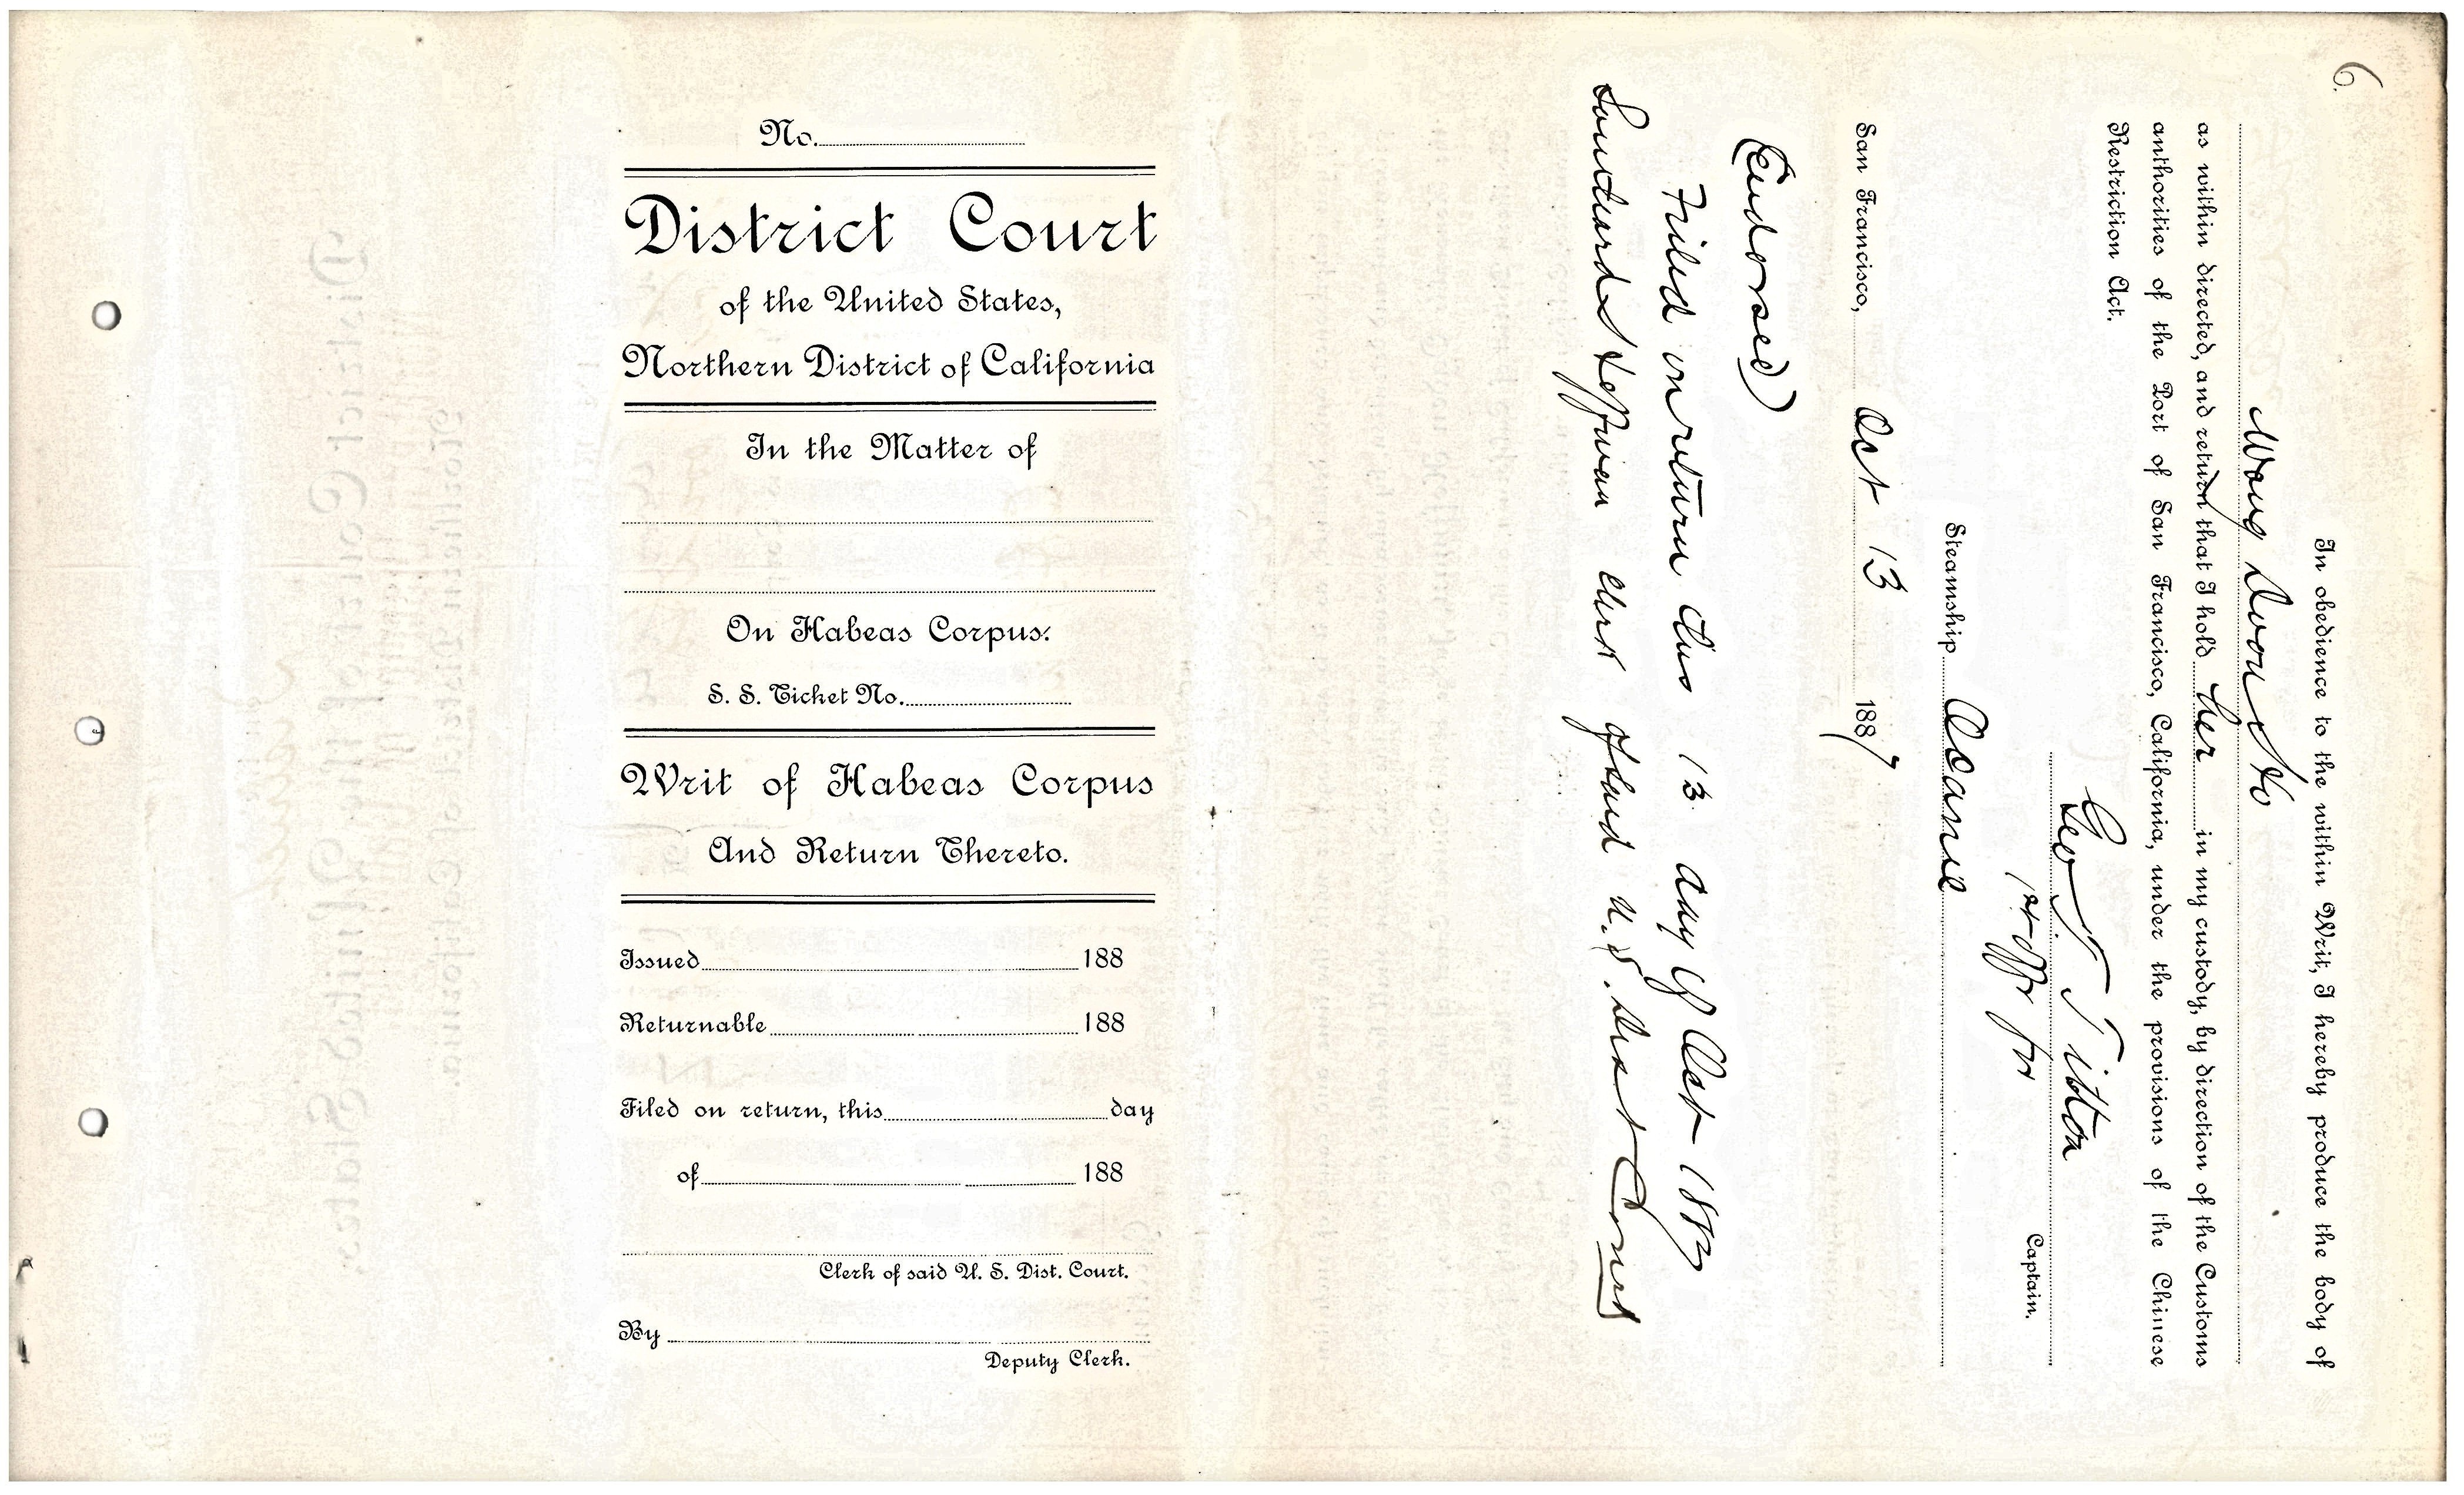 No.
District Court
of the United States,
Northern District of California
In the Matter of
On Habeas Corpus.
S. S. Ticket No.
Writ of Habeas Corpus
And Return Thereto.
Issued 188
Returnable 188
Filed on return, this day
of 188
Clerk of said U. S. Dist. Court.
By
Deputy Clerk.
6
In obedience to the within Writ, I hereby produce the body of
Wong
as within directed, and return that I hold her in my custody, by direction of the Customs
authorities of the Port of San Francisco, California, under the provisions of the Chinese
Restriction Act.
Geo T Tilton
1st offr for
Captain.
Steamship Oceanic
San Francisco, Oct 13 1887
(Endorsed)
Filed on return this 13 day of Oct 1887
Southard Hoffman Clerk of said U.S. Dist Court